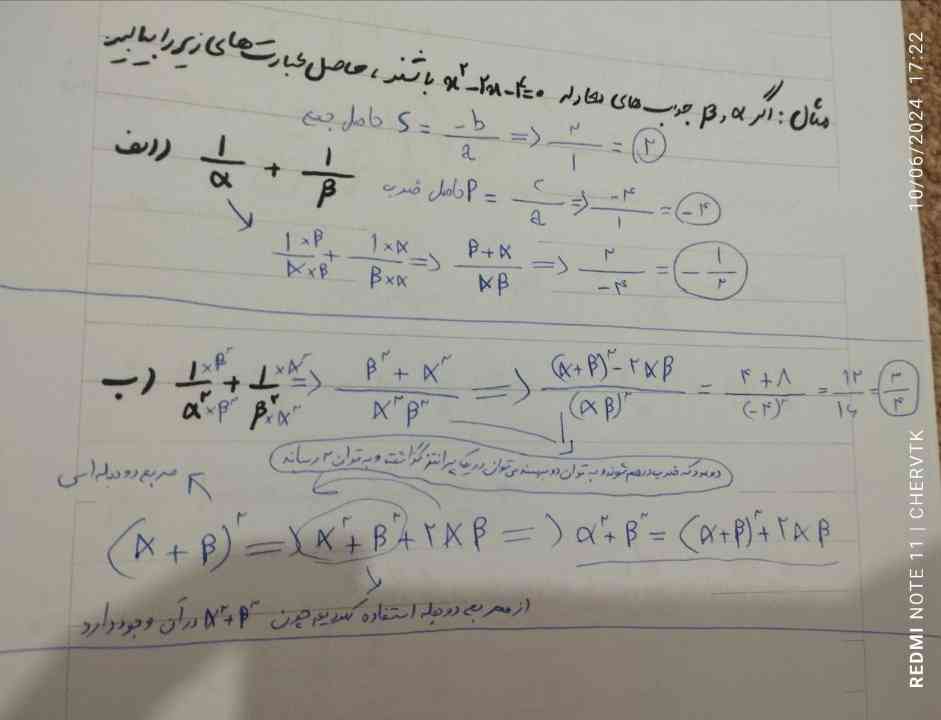 مثال: اگر α و β جوابهای معادله x² - ۲x - ۴ = ۰ باشند، حاصل عبارت‌های زیر را بیابید
حاصل جمع S = -b/a => ۲/۱ = ۲
الف) 1/α + 1/β
حاصل ضرب P = c/a => -۴/۱ = -۴
1×β/α×β + 1×α/β×α => β+α/αβ => ۲/-۴ = -۱/۲
ب) 1×β²/α²×β² + 1×α²/β²×α² => β² + α²/α²β² => (α+β)² - ۲αβ/(αβ)² = ۴+۸/(-۴)² = ۱۲/۱۶ = ۳/۴
دو عدد که ضرب در هم شوند و به توان دو برسند می‌توان در یک پرانتز گذاشت و به توان ۲ رساند
مربع دو جمله‌اسی
(α + β)² => α² + β² + ۲αβ => α² + β² = (α+β)² + ۲αβ
از مربع دو جمله استفاده کردیم چون α²+β² در آن وجود دارد
REDMI NOTE 11 | CHERVTK
10/06/2024 17:22